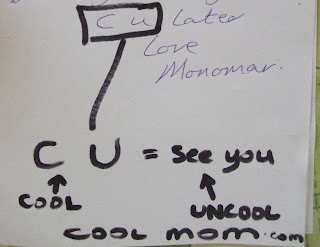 C U Later
Love
Monomar.
C U = see you
COOL UNCOOL
COOL MOM.com